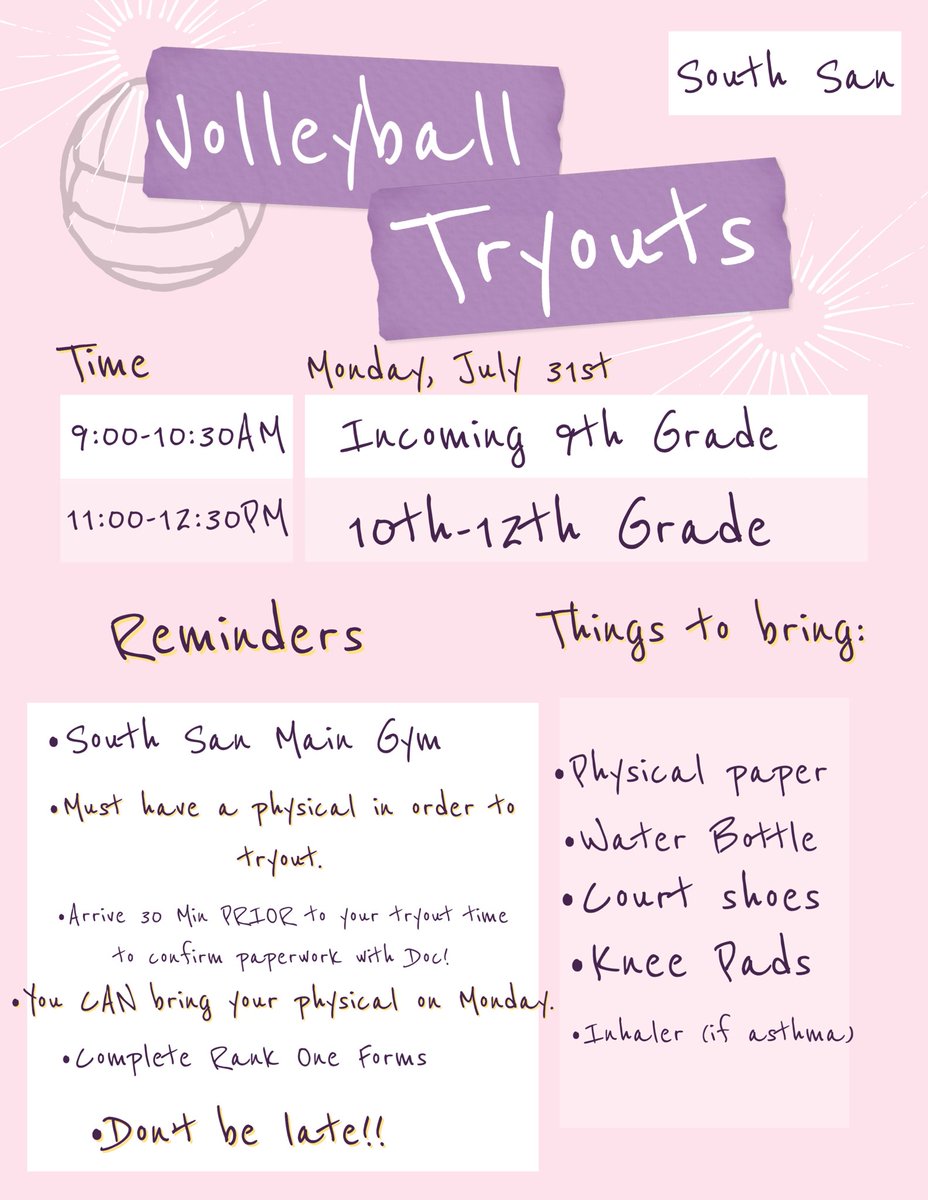 South San
Volleyball
Tryouts
Time
Monday, July 31st
9:00-10:30AM
Incoming 9th Grade
11:00-12:30PM
10th-12th Grade
Reminders
•South San Main Gym
•Must have a physical in order to
tryout.
•Arrive 30 Min PRIOR to your tryout time
to confirm paperwork with Doc!
•You CAN bring your physical on Monday.
•Complete Rank One Forms
•Dont be late!!
Things to bring:
•Physical paper
•Water Bottle
•Court shoes
•Knee Pads
•Inhaler (if asthma)